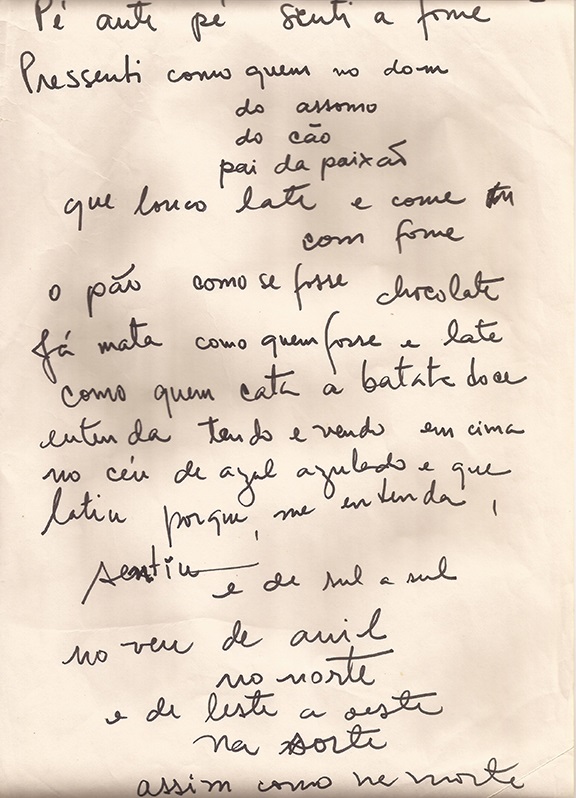 Pé ante pé senti a fome
Pressenti como quem no dom
do assomo
do cão
pai da paixão
que louco late e come
com fome
o pão como se fosse chocolate
Já mata como quem fosse e late
como quem cata a batata doce
entenda tendo e vendo em cima
no céu de azul azulado e que
latiu porque, me entenda,
sentiu
e de sul a sul
no veu de anil
no norte
e de leste a oeste
na sorte
assim como na morte